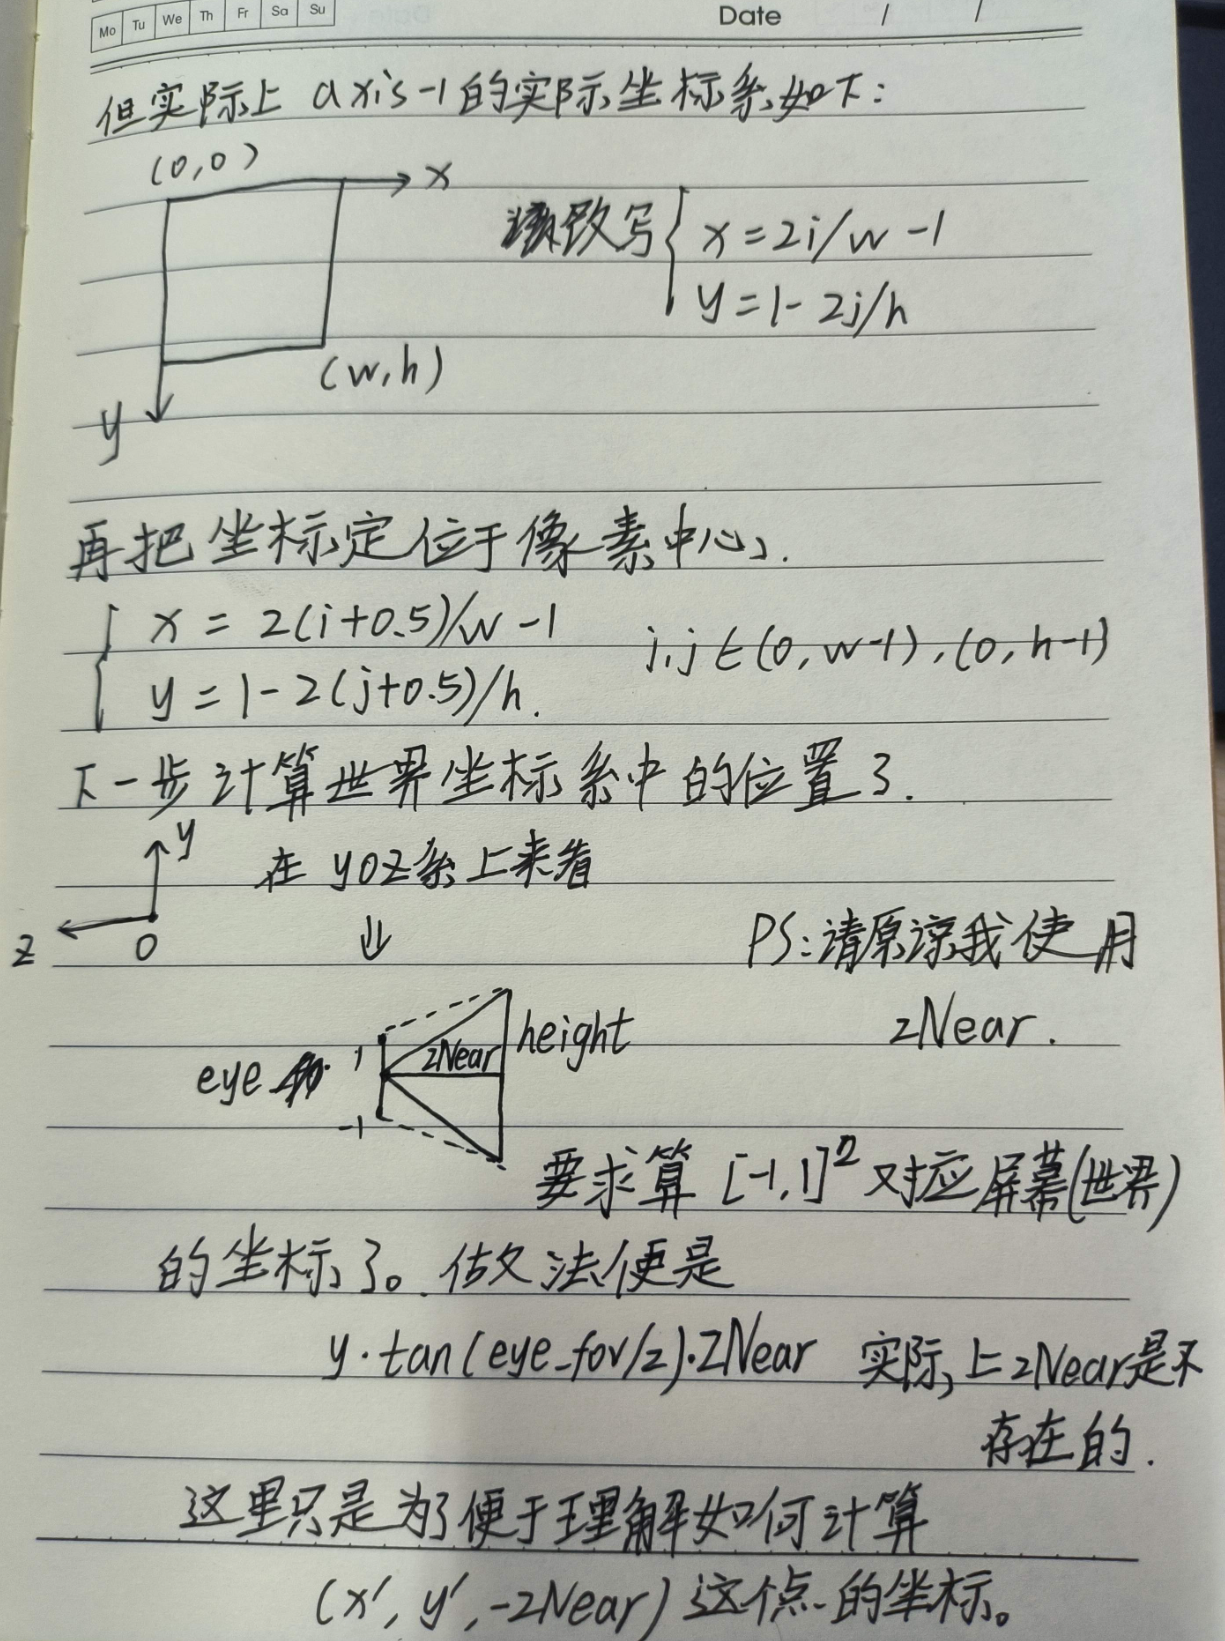 Mo Tu We Th Fr Sa Su
Date / /
但实际上 axis-1的实际坐标系如下:
(0,0)
x
改写 { x=2i/w-1
y=1-2j/h
(w,h)
y
再把坐标定位于像素中心.
{ x = 2(i+0.5)/w-1
i,j∈(0,w-1),(0,h-1)
y=1-2(j+0.5)/h.
下一步计算世界坐标系中的位置了.
y
在 yoz系上来看
z 0
PS:请原谅我使用
zNear.
height
zNear
eye 1
-1
要求算 [-1,1]² 对应屏幕(世界)
的坐标了。做法便是
y·tan(eye_fov/2)·ZNear 实际上zNear是不
存在的.
这里只是为了便于理解如何计算
(x',y',-zNear)这个点的坐标。